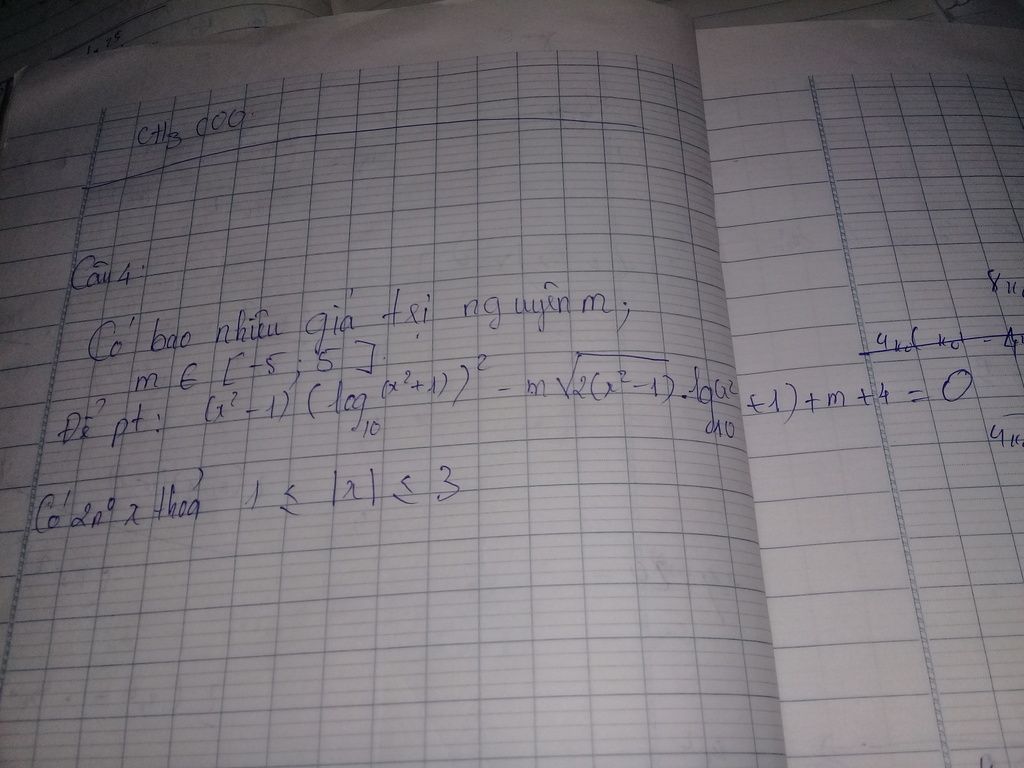 CH3 COO
Câu 4:
Có bao nhiêu giá trị nguyên m;
m ∈ [-5; 5].
Để pt: (x² - 1) (log₁₀(x²+1))² - m√2(x²-1) . log₁₀(x²+1) + m + 4 = 0
Có 2n⁰ x thoả 1 ≤ |x| ≤ 3